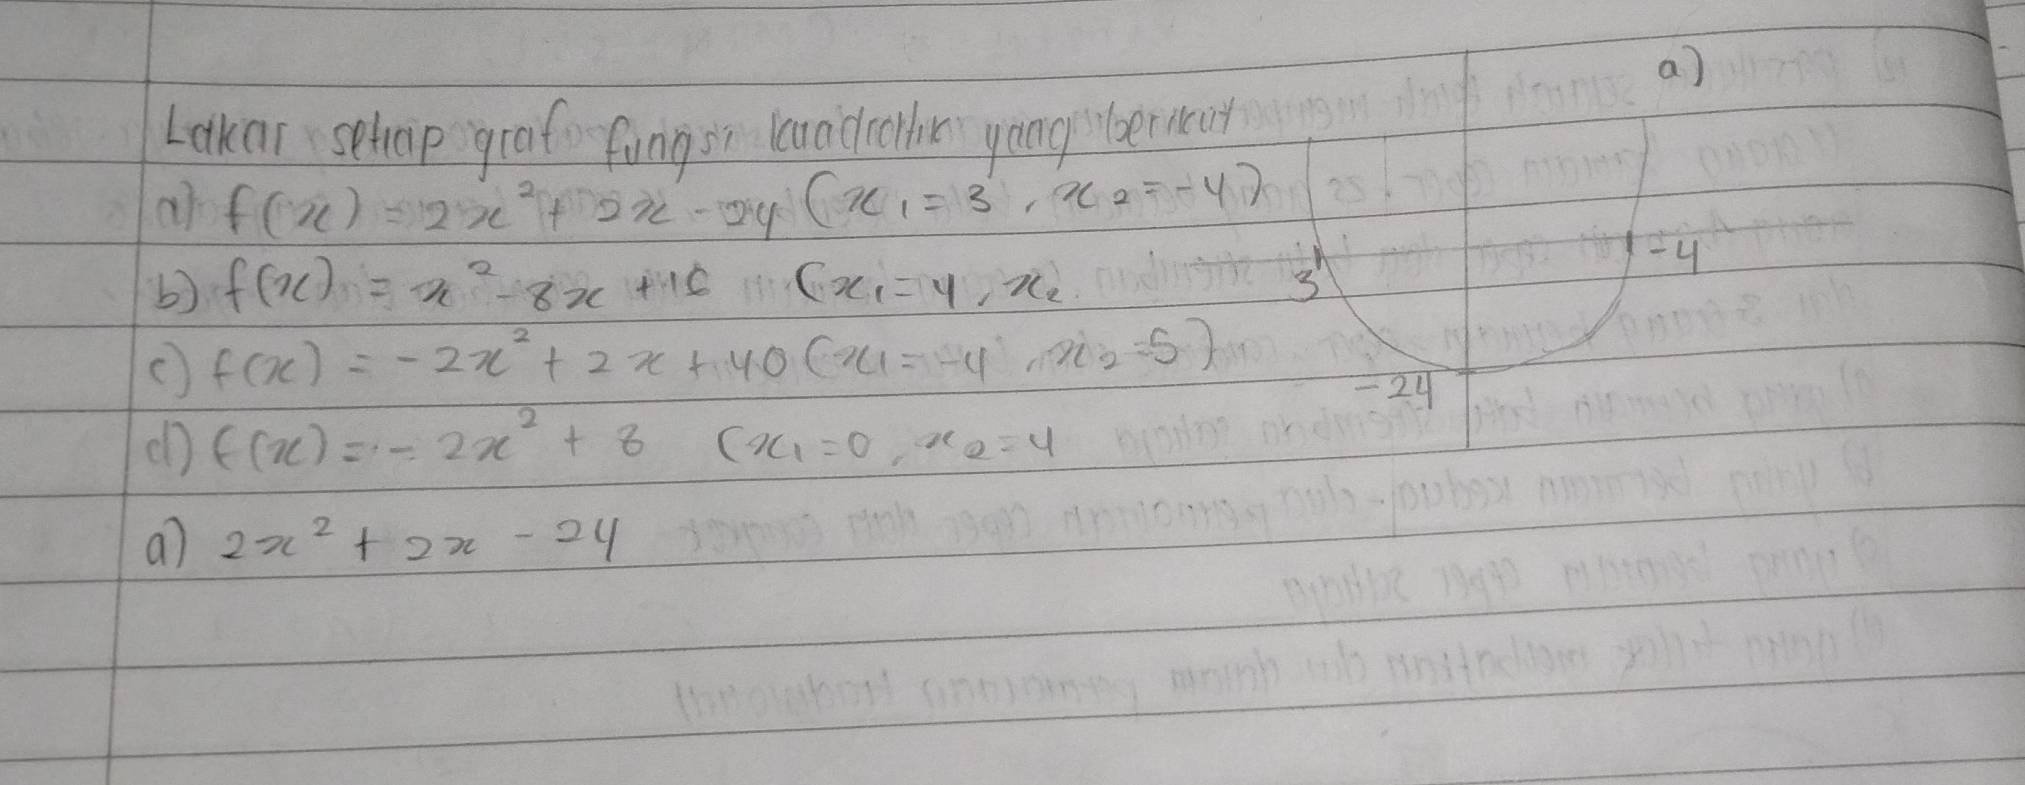 Lakar setiap graf fungsi kuadratik yang berikut
a) f(x) = 2x² + 2x - 24 (x₁ = 3, x₂ = -4)
b) f(x) = x² - 8x + 16 (x₁ = 4, x₂
c) f(x) = -2x² + 2x + 40 (x₁ = -4, x₂ = 5)
d) f(x) = - 2x² + 8 (x₁ = 0, x₂ = 4
a) 2x² + 2x - 24
a)
3
-4
-24